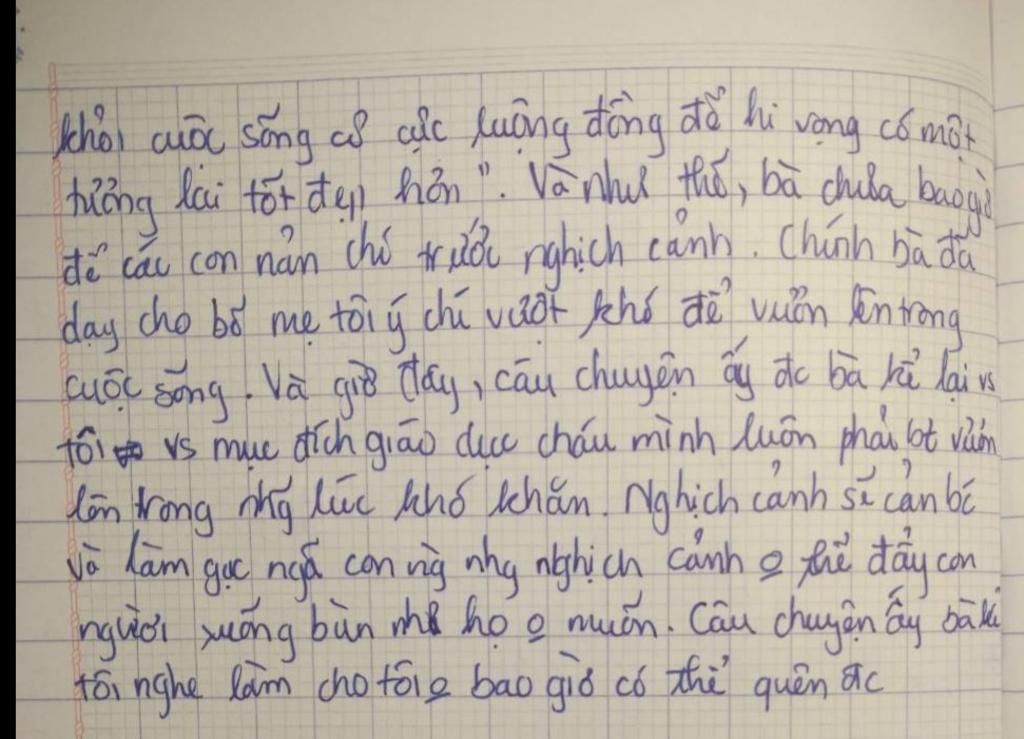 khỏi cuộc sống cơ cực ruộng đồng để hi vọng có một
tương lai tốt đẹp hơn". Và như thế, bà chưa bao giờ
để các con nản chí trước nghịch cảnh. Chính bà đã
dạy cho bố mẹ tôi ý chí vượt khó để vươn lên trong
cuộc sống. Và giờ đây, câu chuyện ấy đc bà kể lại vs
tôi vs mục đích giáo dục cháu mình luôn phải bt vươn
lên trong nhg lúc khó khăn. Nghịch cảnh sẽ cản bc
và làm gục ngã con ng nhg nghịch cảnh o thể đẩy con
người xuống bùn nếu họ o muốn. Câu chuyện ấy bà kể
tôi nghe làm cho tôi o bao giờ có thể quên đc